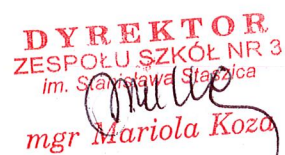 DYREKTOR
ZESPOŁU SZKÓŁ NR 3
im. Stanisława Staszica
mgr Mariola Koza